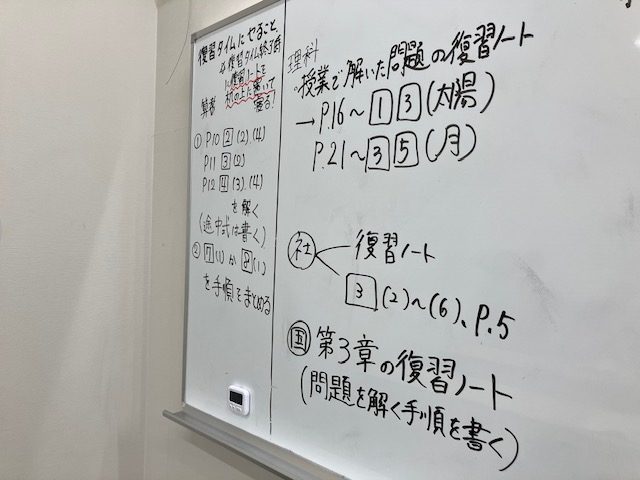 復習タイムにやること
復習タイム終了時
に復習ノートを
机の上に置いて
帰る!
算数
① P10 2 (2).(4)
P11 3 (2)
P12 4 (3).(4)
を解く
(途中式は書く)
② 7(1) か 8(1)
を手順をまとめる
理科
・授業で解いた問題の復習ノート
→P.16~ 1 3 (太陽)
P.21~ 3 5 (月)
社 復習ノート
3 (2)~(6)、P.5
国 第3章の復習ノート
(問題を解く手順を書く)